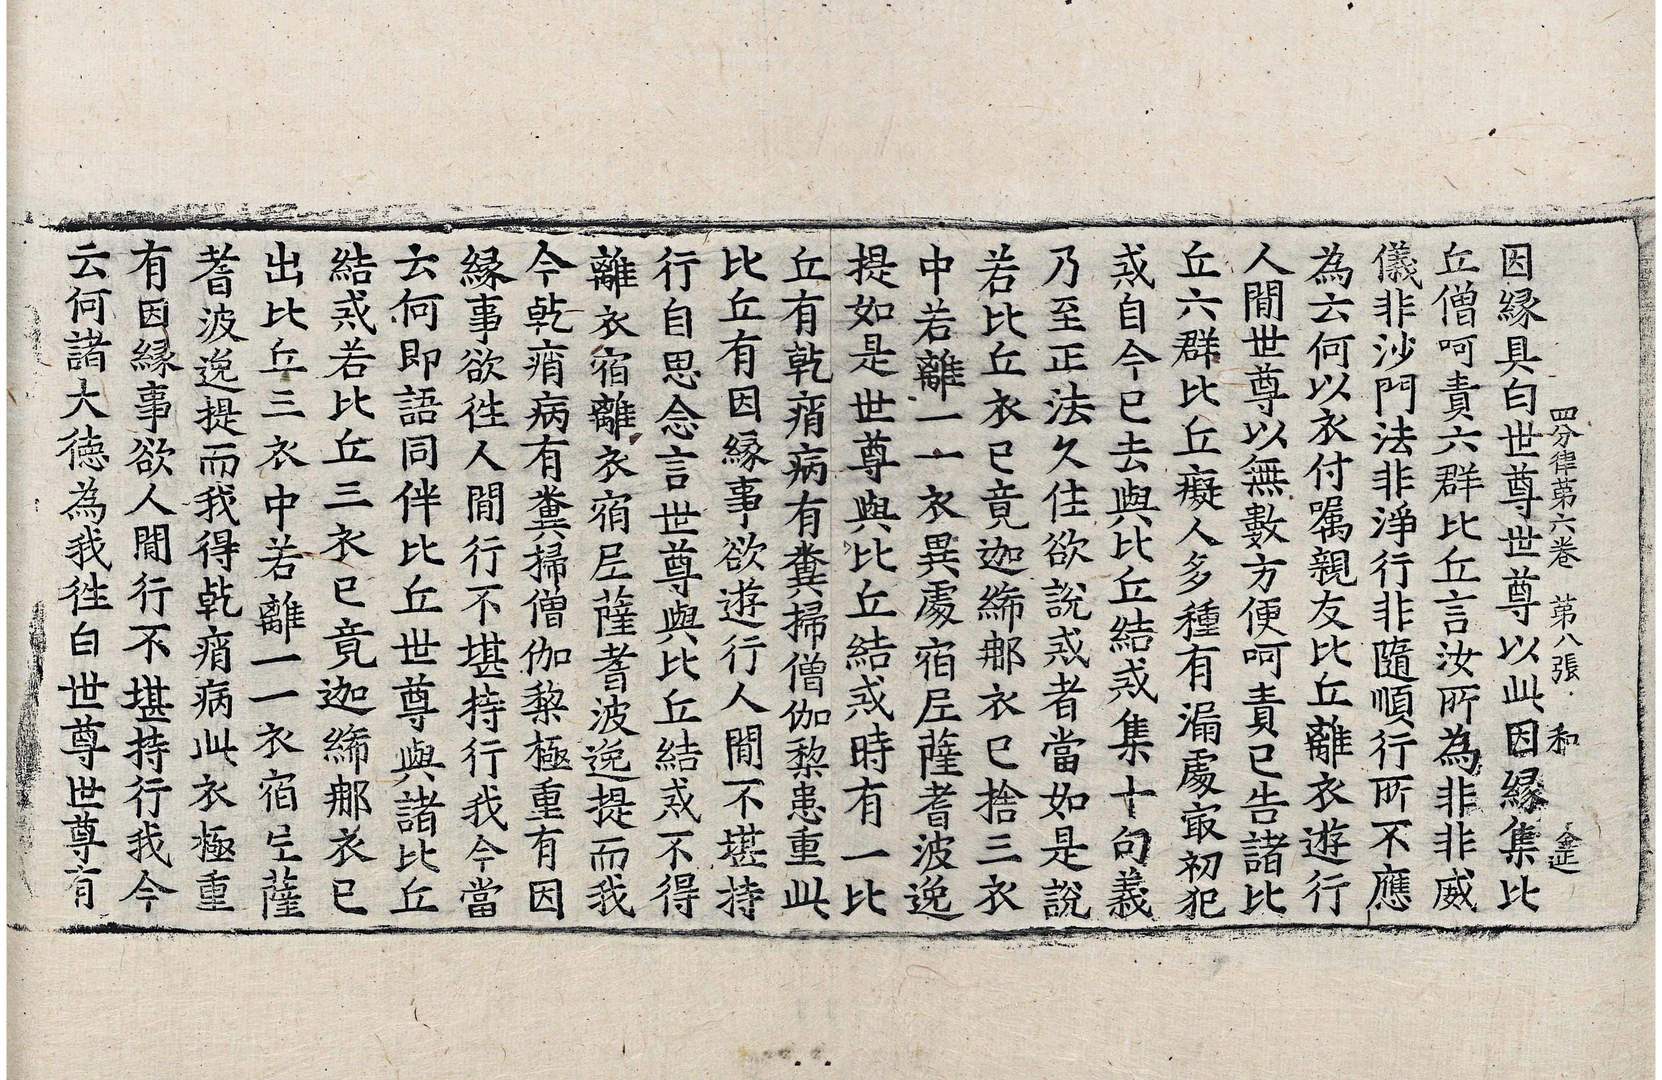 四分律第六卷　第八張　和　金正
因縁具白世尊世尊以此因縁集比
丘僧呵責六群比丘言汝所為非非威
儀非沙門法非淨行非隨順行所不應
為云何以衣付嘱親友比丘離衣遊行
人閒世尊以無數方便呵責已告諸比
丘六群比丘癡人多種有漏處㝡初犯
戒自今已去與比丘結戒集十句義
乃至正法久住欲說戒者當如是說
若比丘衣已竟迦絺那衣已捨三衣
中若離一一衣異處宿尼薩耆波逸
提如是世尊與比丘結戒時有一比
丘有乾痟病有糞掃僧伽梨患重此
比丘有因縁事欲遊行人閒不堪持
行自思念言世尊與比丘結戒不得
離衣宿離衣宿尼薩耆波逸提而我
今乾痟病有糞掃僧伽梨極重有因
縁事欲徃人閒行不堪持行我今當
云何即語同伴比丘世尊與諸比丘
結戒若比丘三衣已竟迦絺那衣已
出比丘三衣中若離一一衣宿尼薩
耆波逸提而我得乾痟病此衣極重
有因縁事欲人閒行不堪持行我今
云何諸大德為我徃白世尊世尊有